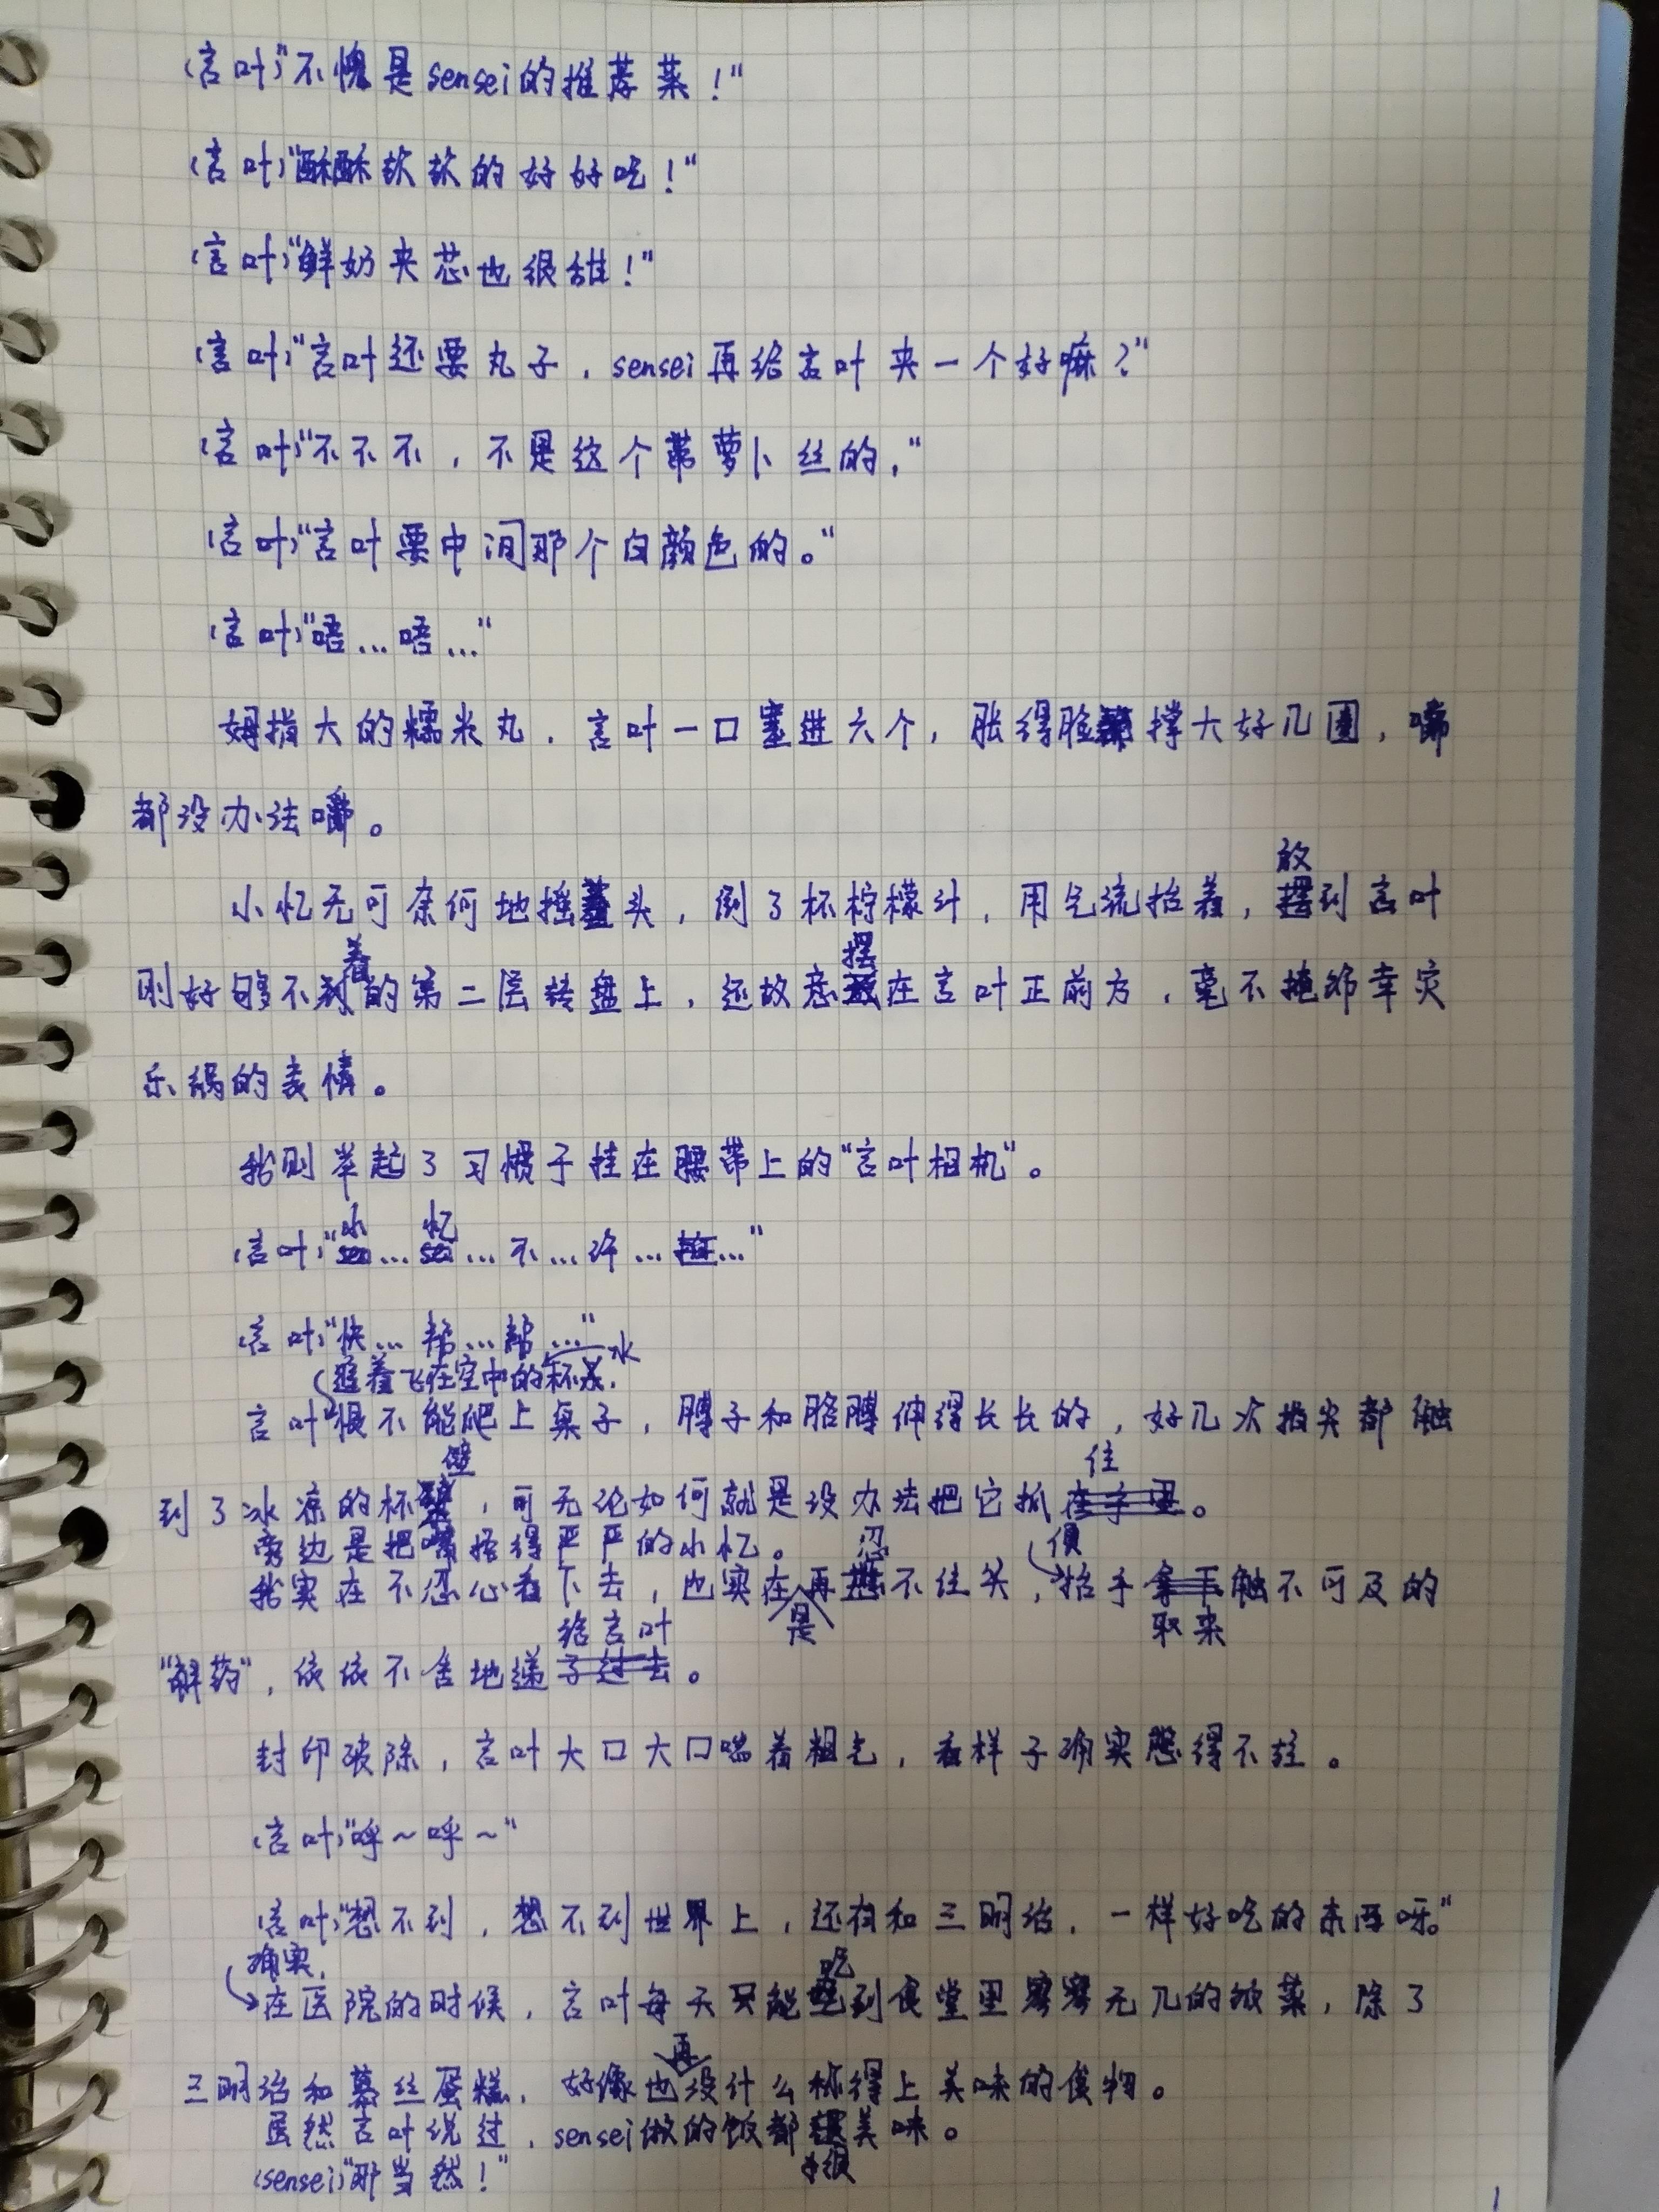 (言叶)“不愧是sensei的推荐菜！”
(言叶)“酥酥软软的好好吃！”
(言叶)“鲜奶夹芯也很甜！”
(言叶)“言叶还要丸子，sensei再给言叶夹一个好嘛？”
(言叶)“不不不，不是这个带萝卜丝的，”
(言叶)“言叶要中间那个白颜色的。”
(言叶)“唔…唔…”
姆指大的糯米丸，言叶一口塞进六个，胀得脸撑大好几圈，嘴
都没办法嚼。
小忆无可奈何地摇着头，倒了杯柠檬汁，用气流抬着，放到言叶
刚好够不着的第二层转盘上，还故意摆在言叶正前方，毫不掩饰幸灾
乐祸的表情。
我则举起了习惯于挂在腰带上的“言叶相机”。
(言叶)“小…忆…不…许…拍…”
(言叶)“快…帮…帮…”
追着飞在空中的杯水，
言叶恨不能爬上桌子，脖子和胳膊伸得长长的，好几次指尖都触
到了冰凉的杯壁，可无论如何就是没办法把它抓住。
旁边是把嘴捂得严严的小忆。
我实在不忍心看下去，也实在是再忍不住笑，便抬手取来触不可及的
“解药”，依依不舍地递给言叶。
封印破除，言叶大口大口喘着粗气，看样子确实憋得不轻。
(言叶)“呼～呼～”
(言叶)“想不到，想不到世界上，还有和三明治，一样好吃的东西呀。”
确实，
在医院的时候，言叶每天只能吃到食堂里寥寥无几的饭菜，除了
三明治和慕丝蛋糕，好像也再没什么称得上美味的食物。
虽然言叶说过，sensei做的饭都很美味。
(sensei)“那当然！”